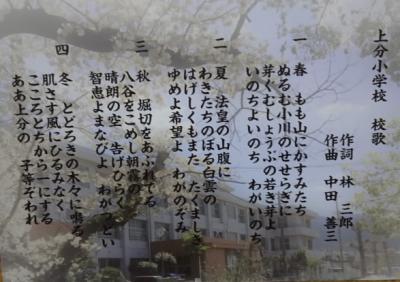 上分小学校 校歌
作詞 林 三郎
作曲 中田 善三
一 春 もも山にかすみたち
ぬるむ小川のせせらぎに
芽ぐむしょうぶの若き芽よ
いのちよいのち わがいのち
二 夏 法皇の山腹に
わきたちのぼる白雲の
はげしくもまた たくましさ
ゆめよ希望よ わがのぞみ
三 秋 堀切をあふれでる
八谷をこめし朝霧の
晴朗の空 告げひらく
智恵よまなびよ わがつどい
四 冬 とどろきの木々に鳴る
肌さす風にひるみなく
こころとちから一にする
ああ上分の 子等ぞわれ